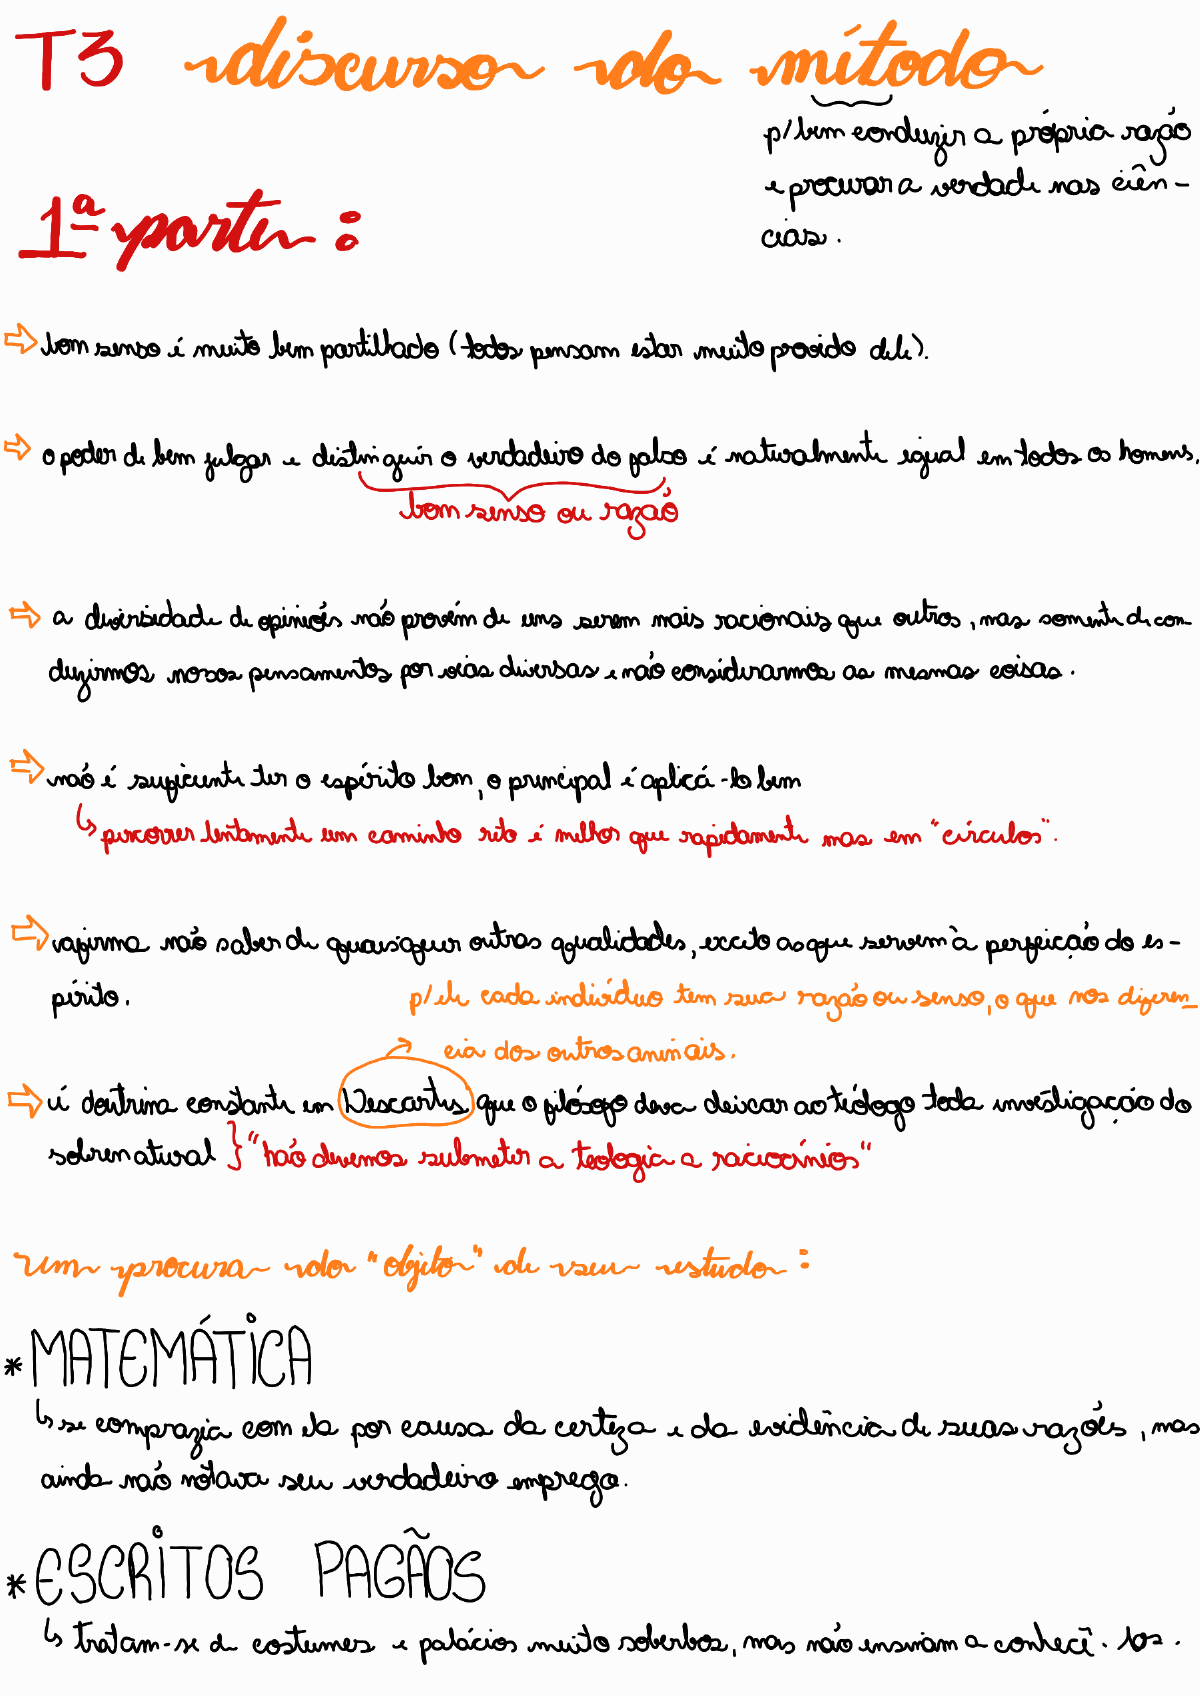 T3 discurso do método
p/ bem conduzir a própria razão
e procurar a verdade nas ciên-
cias.
1ª parte:
⇨ bom senso é muito bem partilhado (todos pensam estar muito provido dele).
⇨ o poder de bem julgar e distinguir o verdadeiro do falso é naturalmente igual em todos os homens.
bom senso ou razão
⇨ a diversidade de opiniões não provém de uns serem mais racionais que outros, mas somente de con-
duzirmos nossos pensamentos por vias diversas e não considerarmos as mesmas coisas.
⇨ não é suficiente ter o espírito bom, o principal é aplicá-lo bem
↳ percorrer lentamente um caminho reto é melhor que rapidamente mas em "círculos".
⇨ afirma não saber de quaisquer outras qualidades, exceto as que servem à perfeição do es-
pírito.
p/ ele cada indivíduo tem sua razão ou senso, o que nos diferen_
cia dos outros animais.
⇨ é doutrina constante em Descartes que o filósofo deva deixar ao teólogo toda investigação do
sobrenatural } "não devemos submeter a teologia a raciocínios"
Em procura do "objeto" de seu estudo:
* MATEMÁTICA
↳ se comprazia com ela por causa da certeza e da evidência de suas razões, mas
ainda não notava seu verdadeiro emprego.
* ESCRITOS PAGÃOS
↳ tratam-se de costumes e palácios muito soberbos, mas não ensinam a conhecê-los.